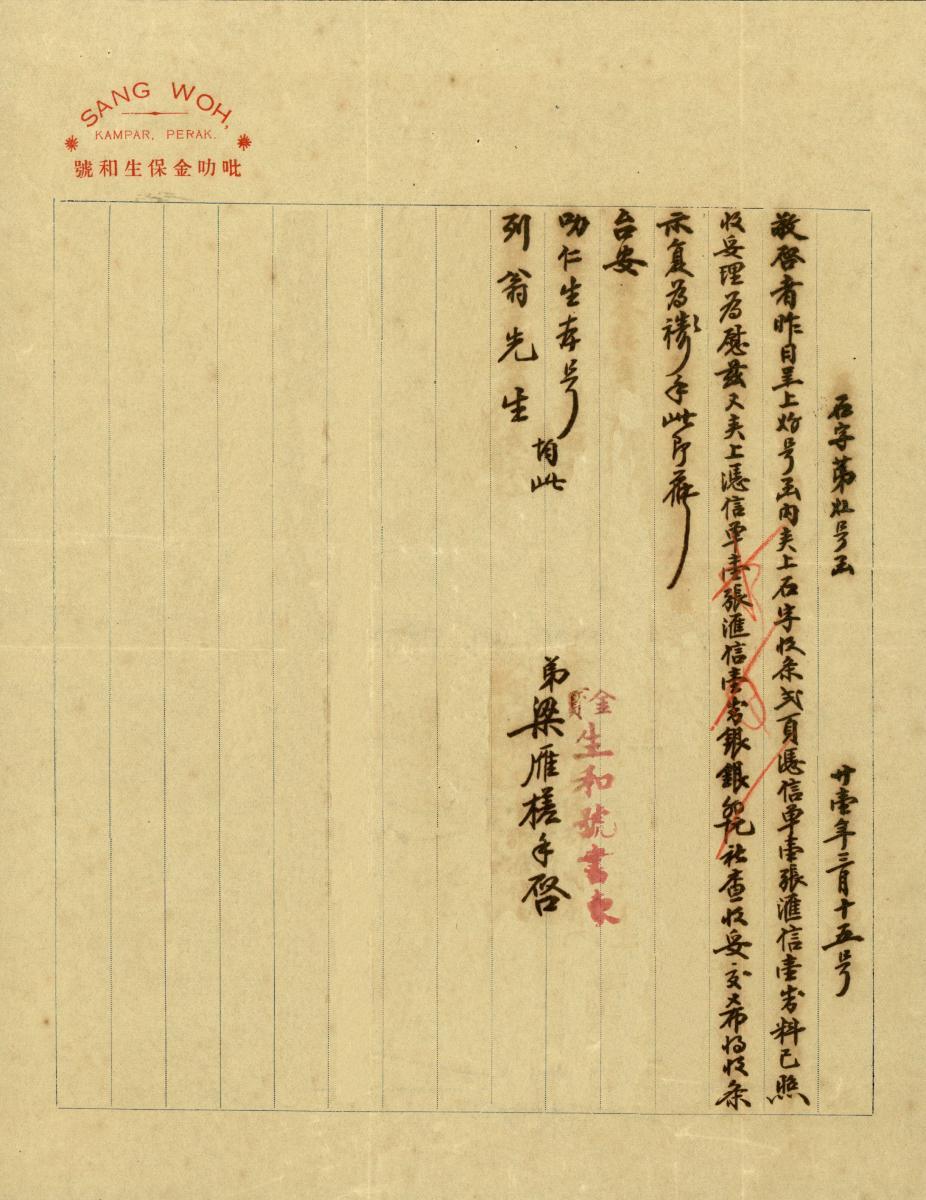 SANG WOH,
KAMPAR, PERAK.
號和生保金叻吡
石字第 号函 廿壹年三月十五号
敬啓者昨日呈上 号函內夾上石字收条弍頁憑信單壹張滙信壹封料已照
收妥理為慰茲又夾上憑信單壹張滙信壹封銀 社查收妥交希將收条
示复為禱手此即頌
台安
叻仁生本号
列翁先生 均此
金寶生和號書柬
弟梁雁槎手啓